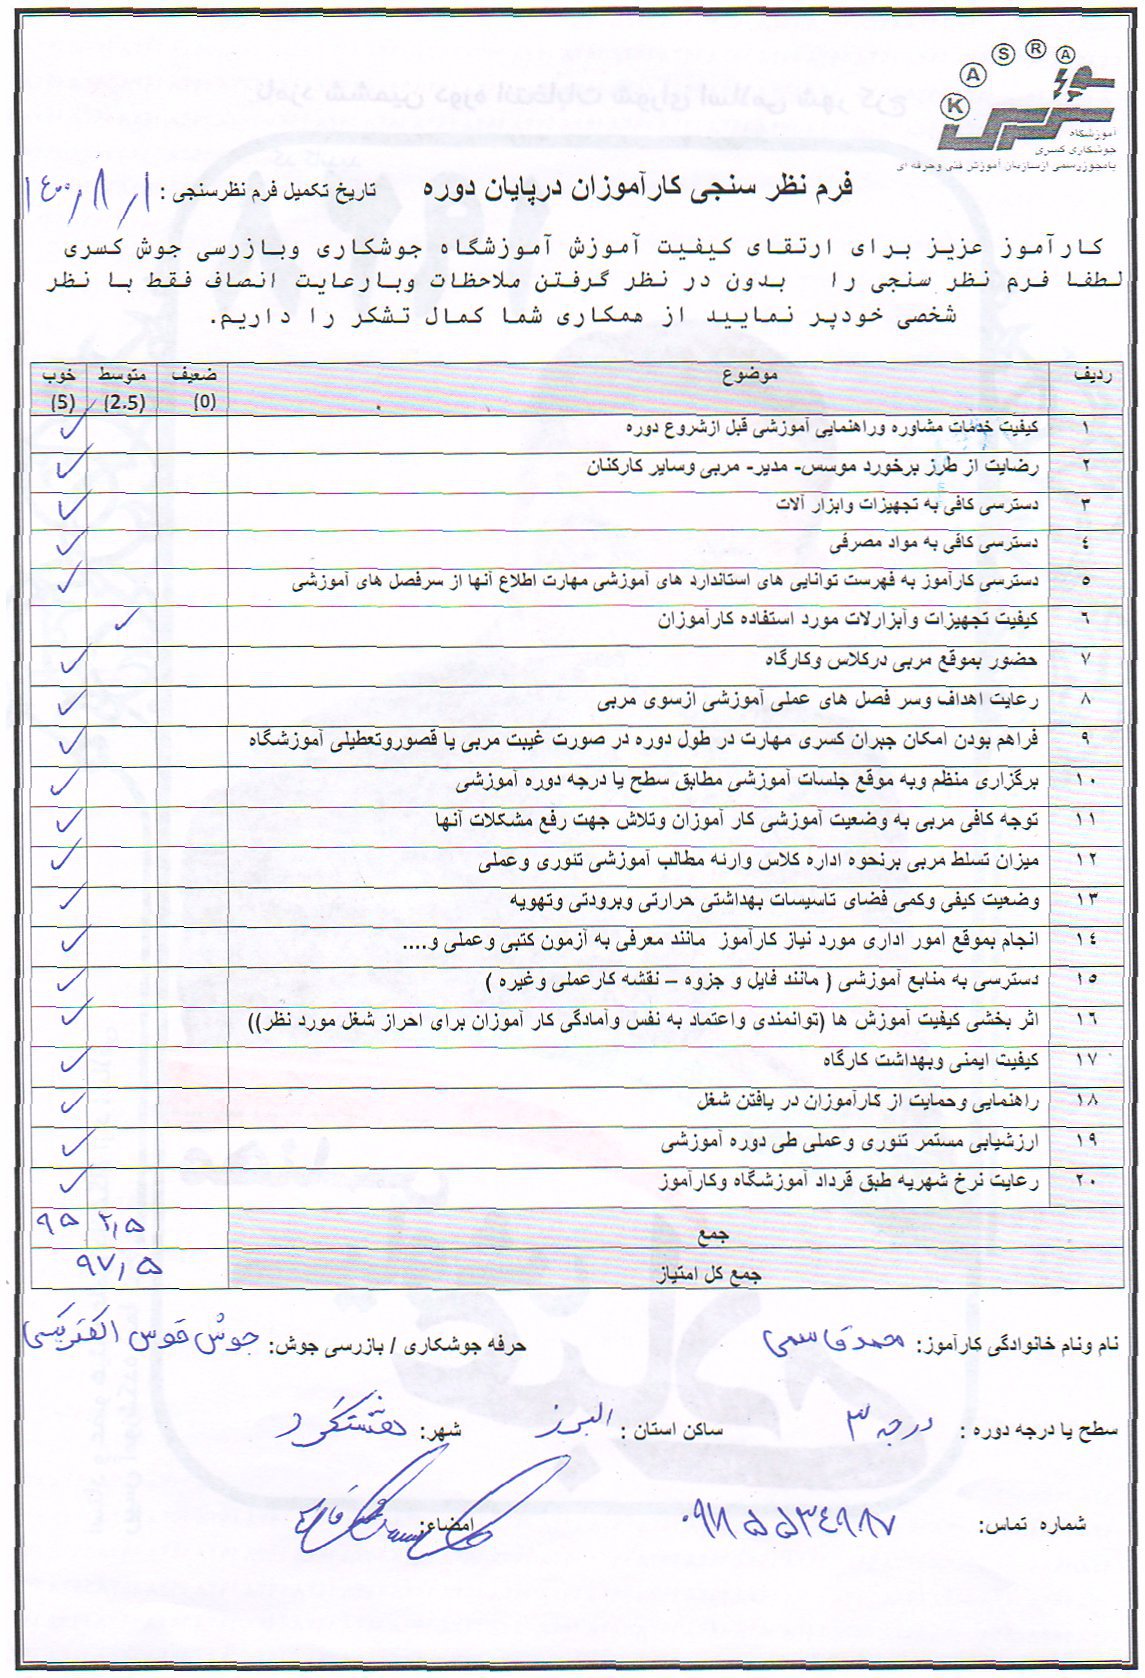 K A S R A
آموزشگاه
جوشکاری کسری
بامجوزرسمی ازسازمان آموزش فنی وحرفه ای
فرم نظر سنجی کارآموزان درپایان دوره تاریخ تکمیل فرم نظرسنجی : ۱۴۰۰/۸/۱
کارآموز عزیز برای ارتقای کیفیت آموزش آموزشگاه جوشکاری وبازرسی جوش کسری
لطفا فرم نظر سنجی را بدون در نظر گرفتن ملاحظات وبارعایت انصاف فقط با نظر
شخصی خودپر نمایید از همکاری شما کمال تشکر را داریم.
ردیف موضوع ضعیف (0) متوسط (2.5) خوب (5)
۱ کیفیت خدمات مشاوره وراهنمایی آموزشی قبل ازشروع دوره ✓
۲ رضایت از طرز برخورد موسس- مدیر- مربی وسایر کارکنان ✓
۳ دسترسی کافی به تجهیزات وابزار آلات ✓
٤ دسترسی کافی به مواد مصرفی ✓
٥ دسترسی کارآموز به فهرست توانایی های استاندارد های آموزشی مهارت اطلاع آنها از سرفصل های آموزشی ✓
٦ کیفیت تجهیزات وآبزارلات مورد استفاده کارآموزان ✓
۷ حضور بموقع مربی درکلاس وکارگاه ✓
۸ رعایت اهداف وسر فصل های عملی آموزشی ازسوی مربی ✓
۹ فراهم بودن امکان جبران کسری مهارت در طول دوره در صورت غیبت مربی یا قصوروتعطیلی آموزشگاه ✓
۱۰ برگزاری منظم وبه موقع جلسات آموزشی مطابق سطح یا درجه دوره آموزشی ✓
۱۱ توجه کافی مربی به وضعیت آموزشی کار آموزان وتلاش جهت رفع مشکلات آنها ✓
۱۲ میزان تسلط مربی برنحوه اداره کلاس وارئه مطالب آموزشی تئوری وعملی ✓
۱۳ وضعیت کیفی وکمی فضای تاسیسات بهداشتی حرارتی وبرودتی وتهویه ✓
۱٤ انجام بموقع امور اداری مورد نیاز کارآموز مانند معرفی به آزمون کتبی وعملی و.... ✓
۱٥ دسترسی به منابع آموزشی ( مانند فایل و جزوه – نقشه کارعملی وغیره ) ✓
۱٦ اثر بخشی کیفیت آموزش ها (توانمندی واعتماد به نفس وآمادگی کار آموزان برای احراز شغل مورد نظر)) ✓
۱۷ کیفیت ایمنی وبهداشت کارگاه ✓
۱۸ راهنمایی وحمایت از کارآموزان در یافتن شغل ✓
۱۹ ارزشیابی مستمر تئوری وعملی طی دوره آموزشی ✓
۲۰ رعایت نرخ شهریه طبق قرداد آموزشگاه وکارآموز ✓
جمع ۲٫۵ ۹۵
جمع کل امتیاز ۹۷٫۵
نام ونام خانوادگی کارآموز: محمد قاسمی حرفه جوشکاری / بازرسی جوش: جوش قوس الکتریکی
سطح یا درجه دوره : درجه ۳ ساکن استان : البرز شهر: هشتگرد
شماره تماس: امضاء: